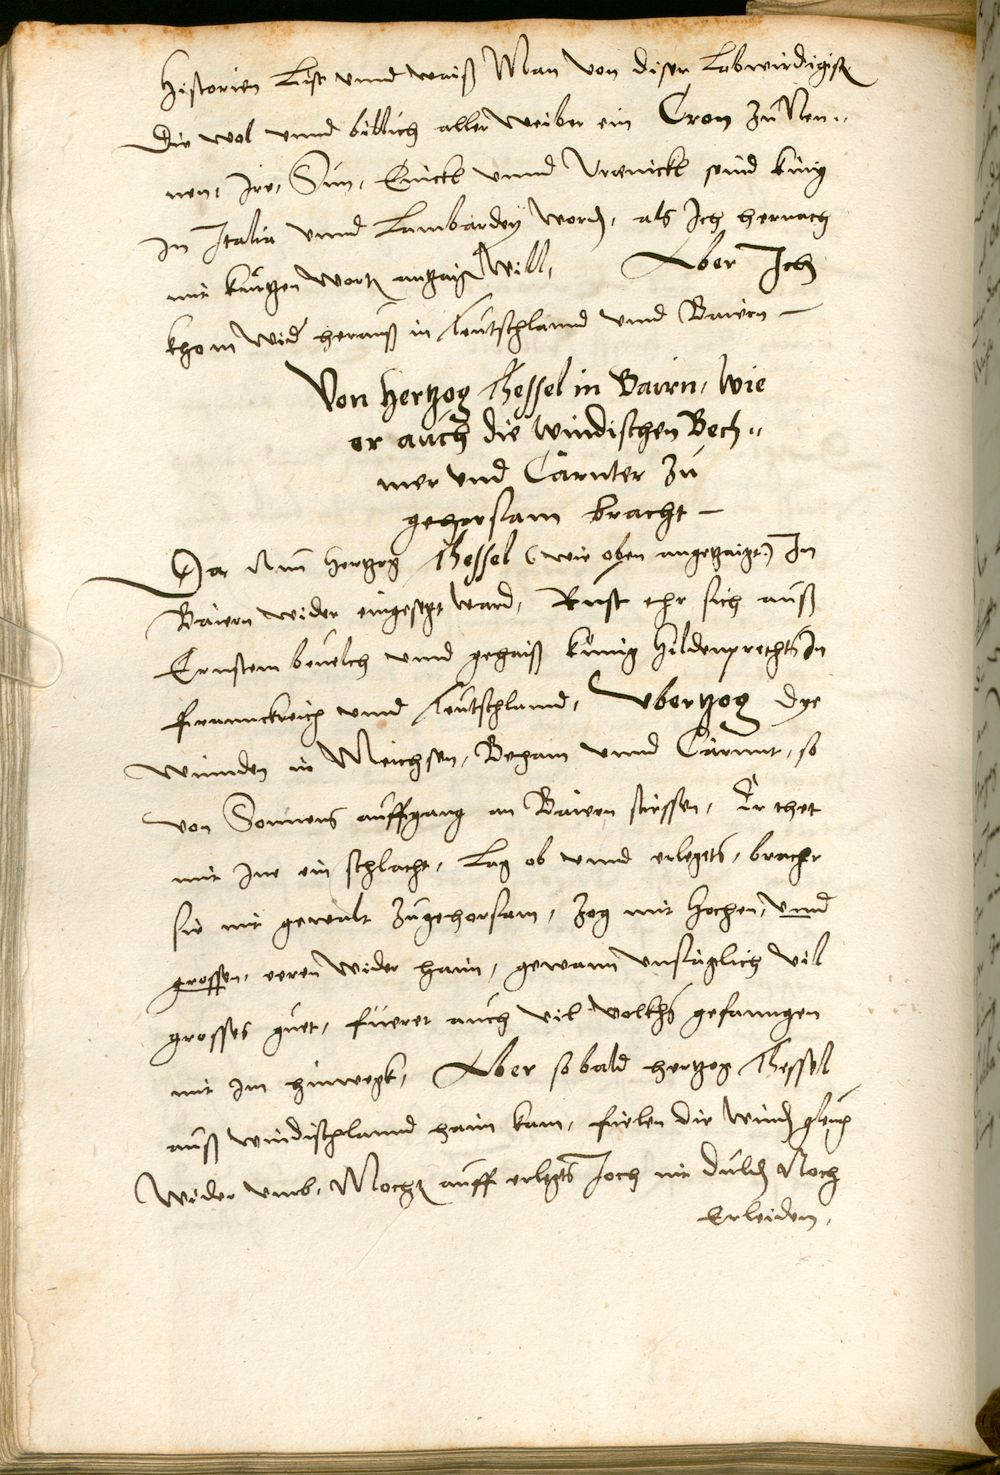 Historien List vnnd waiß Man von diser Lobwirdigist
Die wol vnnd billich aller weiber ein Cron zu Nen=
nen, Ire, Sun, Enickl vnnd Vrenickl seind künig
in Italia vnnd Lambardey word, als Ich hernach
mit kurtzen wort antzaig Will, Aber Ich
khom wid herauß in Teutschlannd vnnd Baiern –
Von hertzog Thessel in Bairn, Wie
er auch die windischen Bech=
mer vnd Cärnter zu
gehorsam bracht –
Da Nun hertzog Thessel (wie oben angetzaigt) In
Baiern wider eingesetzt ward, Rust ehr sich auß
Ernstem beuelch vnnd gehaiß künig Hildenprechts In
Frannckreich vnnd Teutschlannd, Vbertzog dye
winnden in Meichsen, Behaim vnnd Cärnnt, so
von Sonnens auffgang an Baiern stiessen, Er thet
mit Ine ein schlacht, Lag ob vnnd erlegets, bracht
sie mit gewalt zugehorsam, zog mit hochen, vnnd
grossen, eeren wider haim, gewann vnsäglich vil
grosses guet, füeret auch vil volkhs gefanngen
mit im hinwegk, Aber so bald hertzog Thessel
auß windischlannd haim kam, fielen die wind gleich
wider vmb, Mocht auff erlegts Joch nit duld Noch
Erleiden,